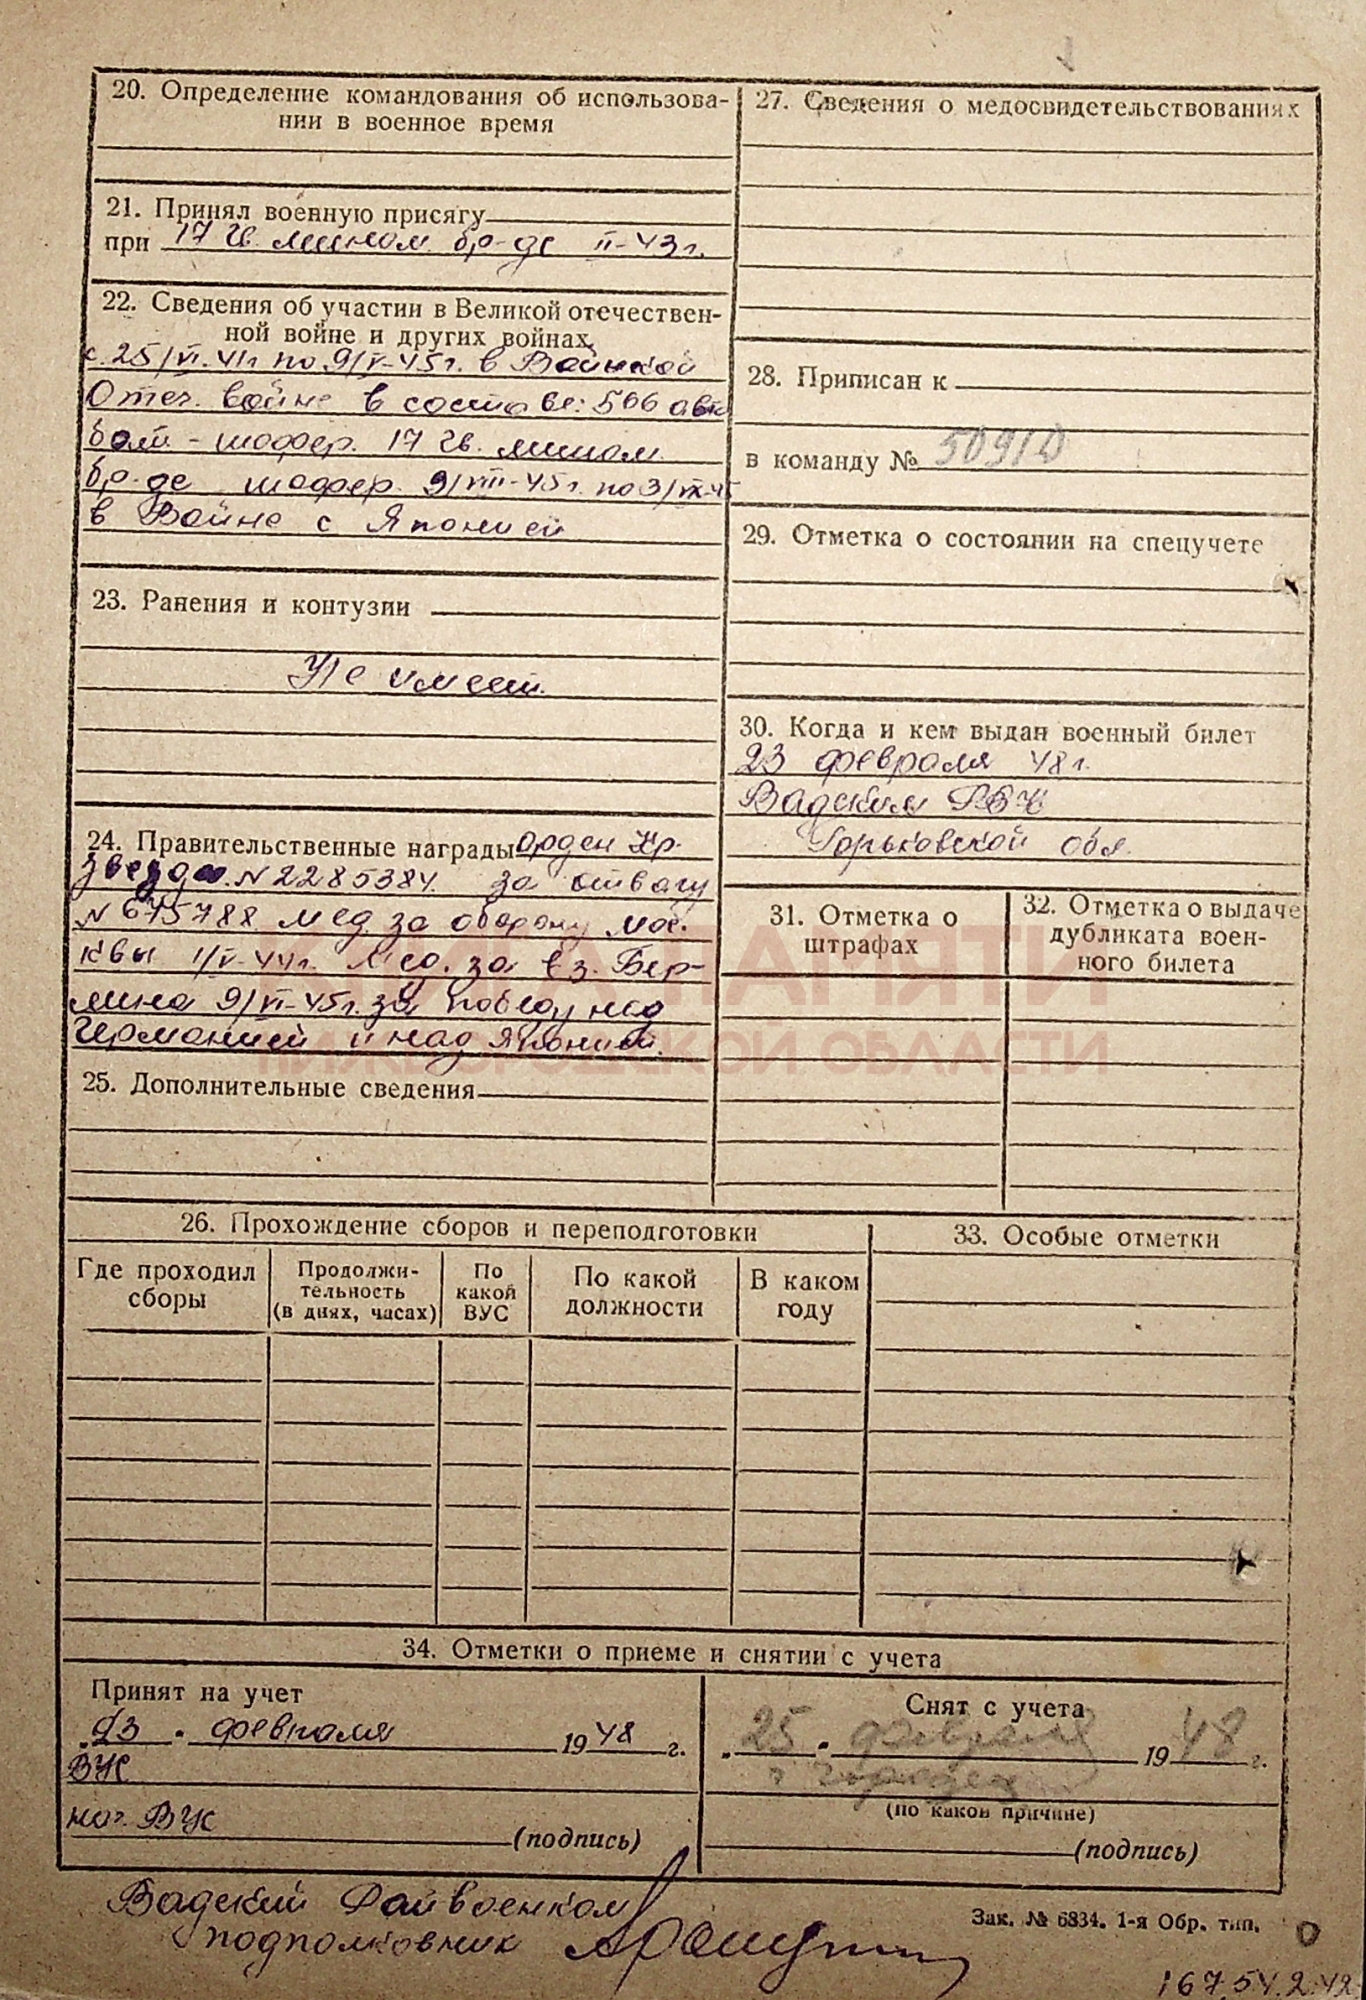 20. Определение командования об использова-
нии в военное время
21. Принял военную присягу
при 17 Гв. мином. бр-де II-43 г.
22. Сведения об участии в Великой отечествен-
ной войне и других войнах
с 25/VI.41г по 9/V-45 г. в
Отеч. войне в составе: 566 авто
бат - шофер. 17 Гв. мином.
бр-де шофер. 9/VIII-45 г. по 3/IX-45
в Войне с Японией
23. Ранения и контузии
Не имеет.
24. Правительственные награды орден Кр.
звезда. N 2285384. за отвагу
N 675788 мед. за оборону Мос.
квы 1/V-44г. Мед. за вз. Бер-
лина 9/VI-45 г. за победу над
Германией и над Японией.
25. Дополнительные сведения
27. Сведения о медосвидетельствованиях
28. Приписан к
в команду № 5091/D
29. Отметка о состоянии на спецучете
30. Когда и кем выдан военный билет
23 февраля 48 г.
Вадским РВК
Горьковской обл.
31. Отметка о
штрафах
32. Отметка о выдаче
дубликата воен-
ного билета
КНИГА ПАМЯТИ
НИЖЕГОРОДСКОЙ ОБЛАСТИ
26. Прохождение сборов и переподготовки
Где проходил
сборы
Продолжи-
тельность
(в днях, часах)
По
какой
ВУС
По какой
должности
В каком
году
33. Особые отметки
34. Отметки о приеме и снятии с учета
Принят на учет
„23 " февраля 1948 г.
ВУС
нач. ВУС
(подпись)
Снят с учета
„25 " февраля 1948 г.
(по какой причине)
(подпись)
Вадский Райвоенком
подполковник
Зак. № 6834. 1-я Обр. тип.
167.54.2.42